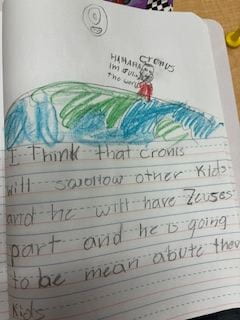 cronus
HAHAHA
im
the
I Think that cronis
will swollow other kids
and he will have Zeuses
part and he is going
to be mean abute ther
kids